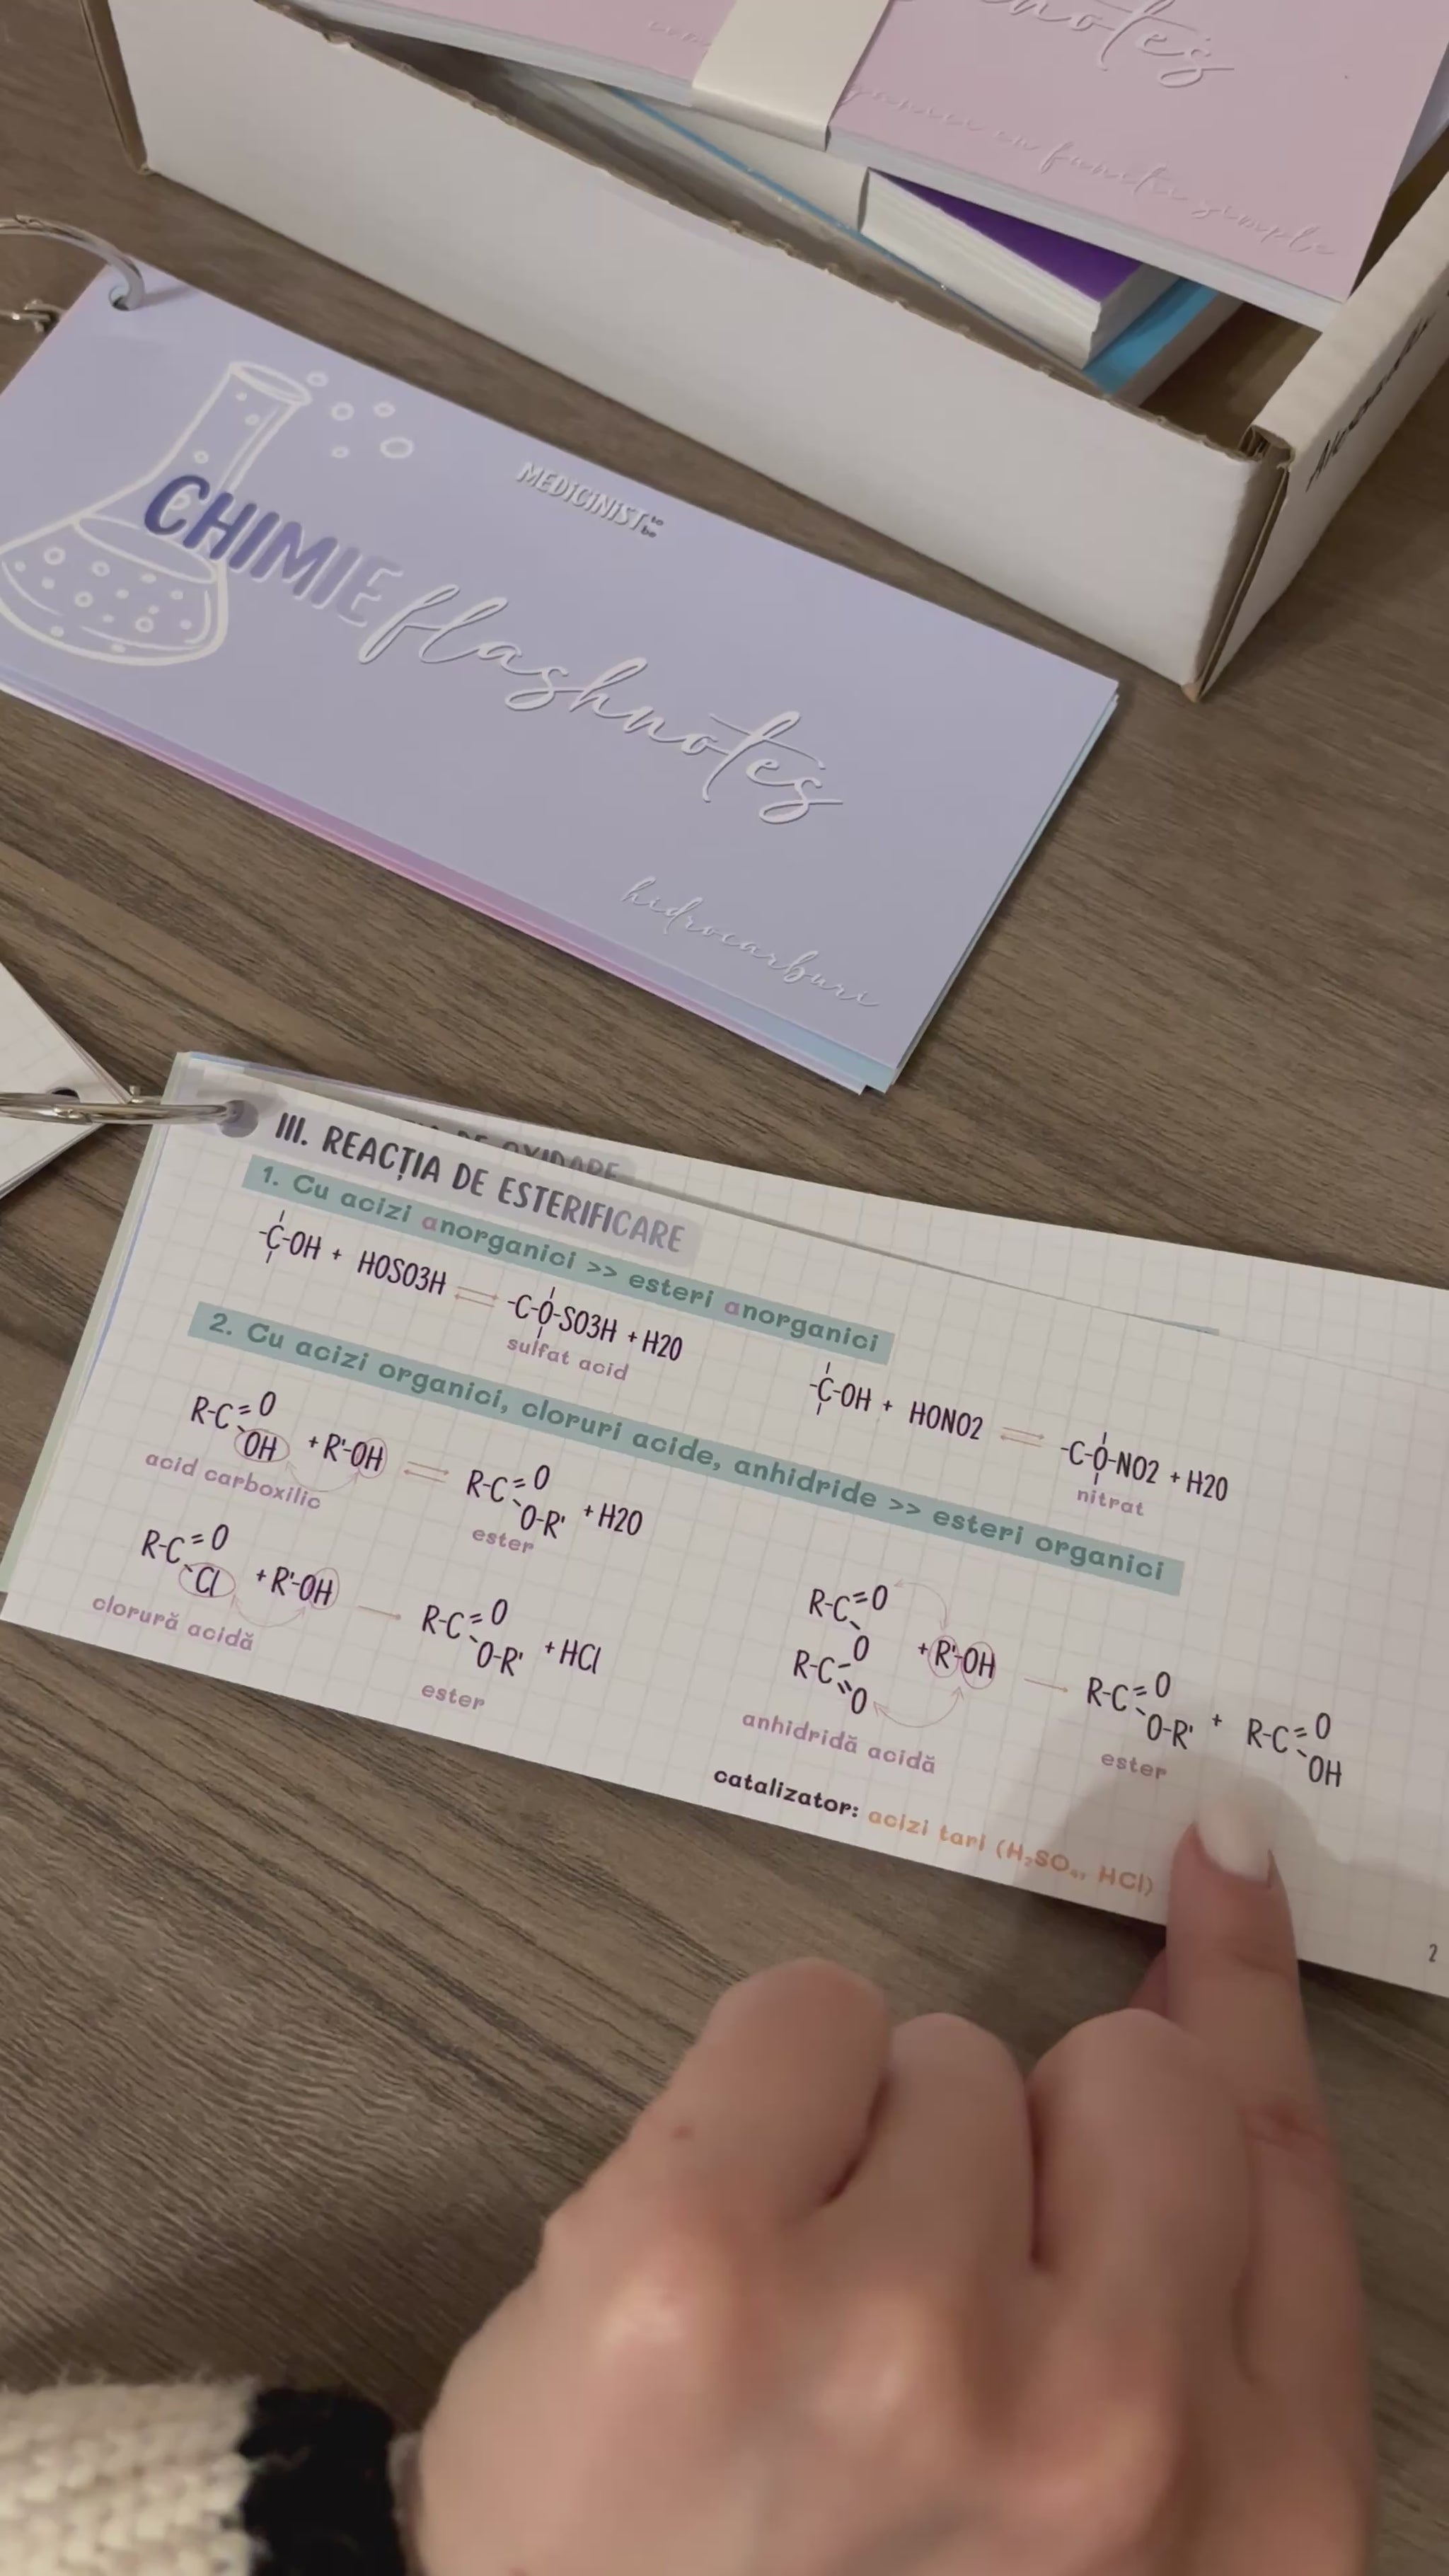 notes
organici cu funcții simple
MEDICINIST to be
CHIMIE flashnotes
hidrocarburi
DE OXIDARE
III. REACȚIA DE ESTERIFICARE
1. Cu acizi anorganici >> esteri anorganici
-C-OH + HOSO3H ⇌ -C-O-SO3H + H2O
sulfat acid
-C-OH + HONO2 ⇌ -C-O-NO2 + H2O
nitrat
2. Cu acizi organici, cloruri acide, anhidride >> esteri organici
R-C=O
OH + R'-OH ⇌ R-C=O
O-R' + H2O
acid carboxilic
ester
R-C=O
Cl + R'-OH → R-C=O
O-R' + HCl
clorură acidă
ester
R-C=O
O
R-C=O + R'-OH → R-C=O
O-R' + R-C=O
OH
anhidridă acidă
ester
catalizator: acizi tari (H₂SO₄, HCl)
2